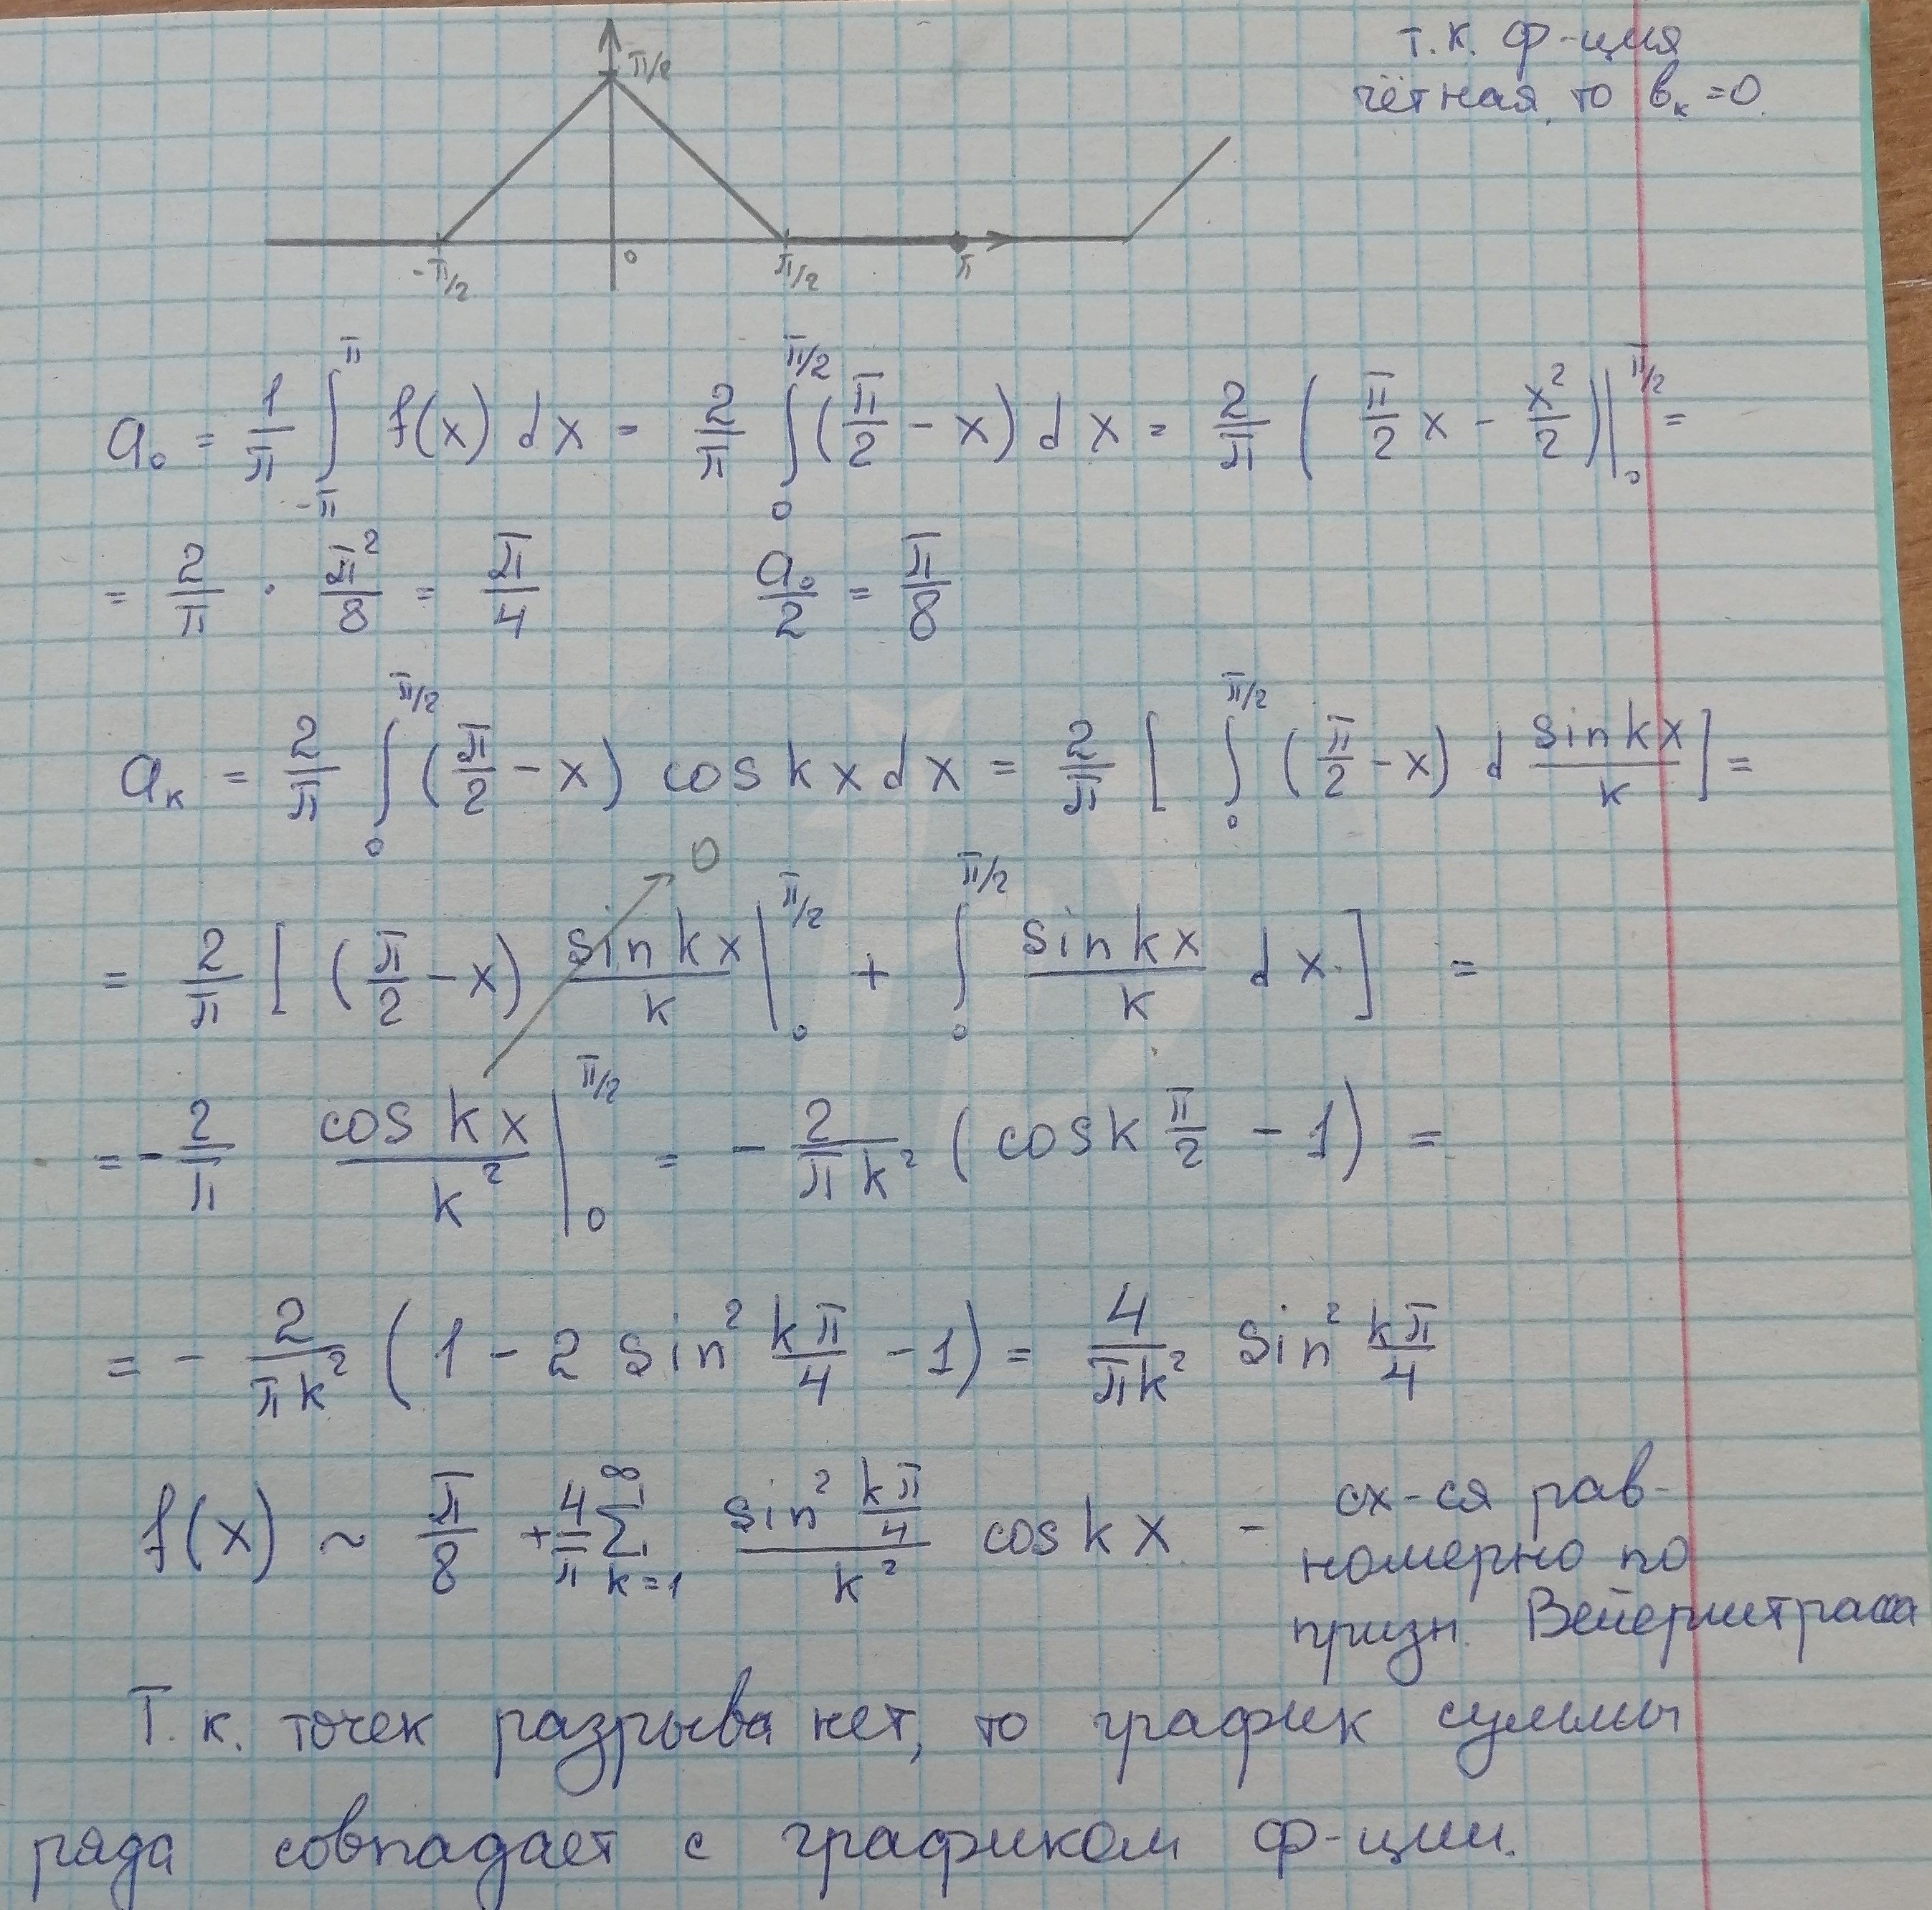 т.к. ф-ция
чётная, то b_k = 0.
π/2
-π/2 0 π/2 π
a₀ = 1/π ∫_{-π}^{π} f(x) dx = 2/π ∫_0^{π/2} (π/2 - x) dx = 2/π (π/2 x - x²/2)|_0^{π/2} =
= 2/π · π²/8 = π/4 a₀/2 = π/8
a_k = 2/π ∫_0^{π/2} (π/2 - x) cos kx dx = 2/π [ ∫_0^{π/2} (π/2 - x) d sin kx/k ] =
0
= 2/π [ (π/2 - x) sin kx/k |_0^{π/2} + ∫_0^{π/2} sin kx/k dx ] =
= - 2/π cos kx/k² |_0^{π/2} = - 2/(πk²) (cos k π/2 - 1) =
= - 2/(πk²) (1 - 2 sin² kπ/4 - 1) = 4/(πk²) sin² kπ/4
f(x) ~ π/8 + 4/π ∑_{k=1}^{∞} (sin² kπ/4)/k² cos kx - сх-ся рав-
номерно по
призн. Вейерштрасса
Т.к. точек разрыва нет, то график суммы
ряда совпадает с графиком ф-ции.